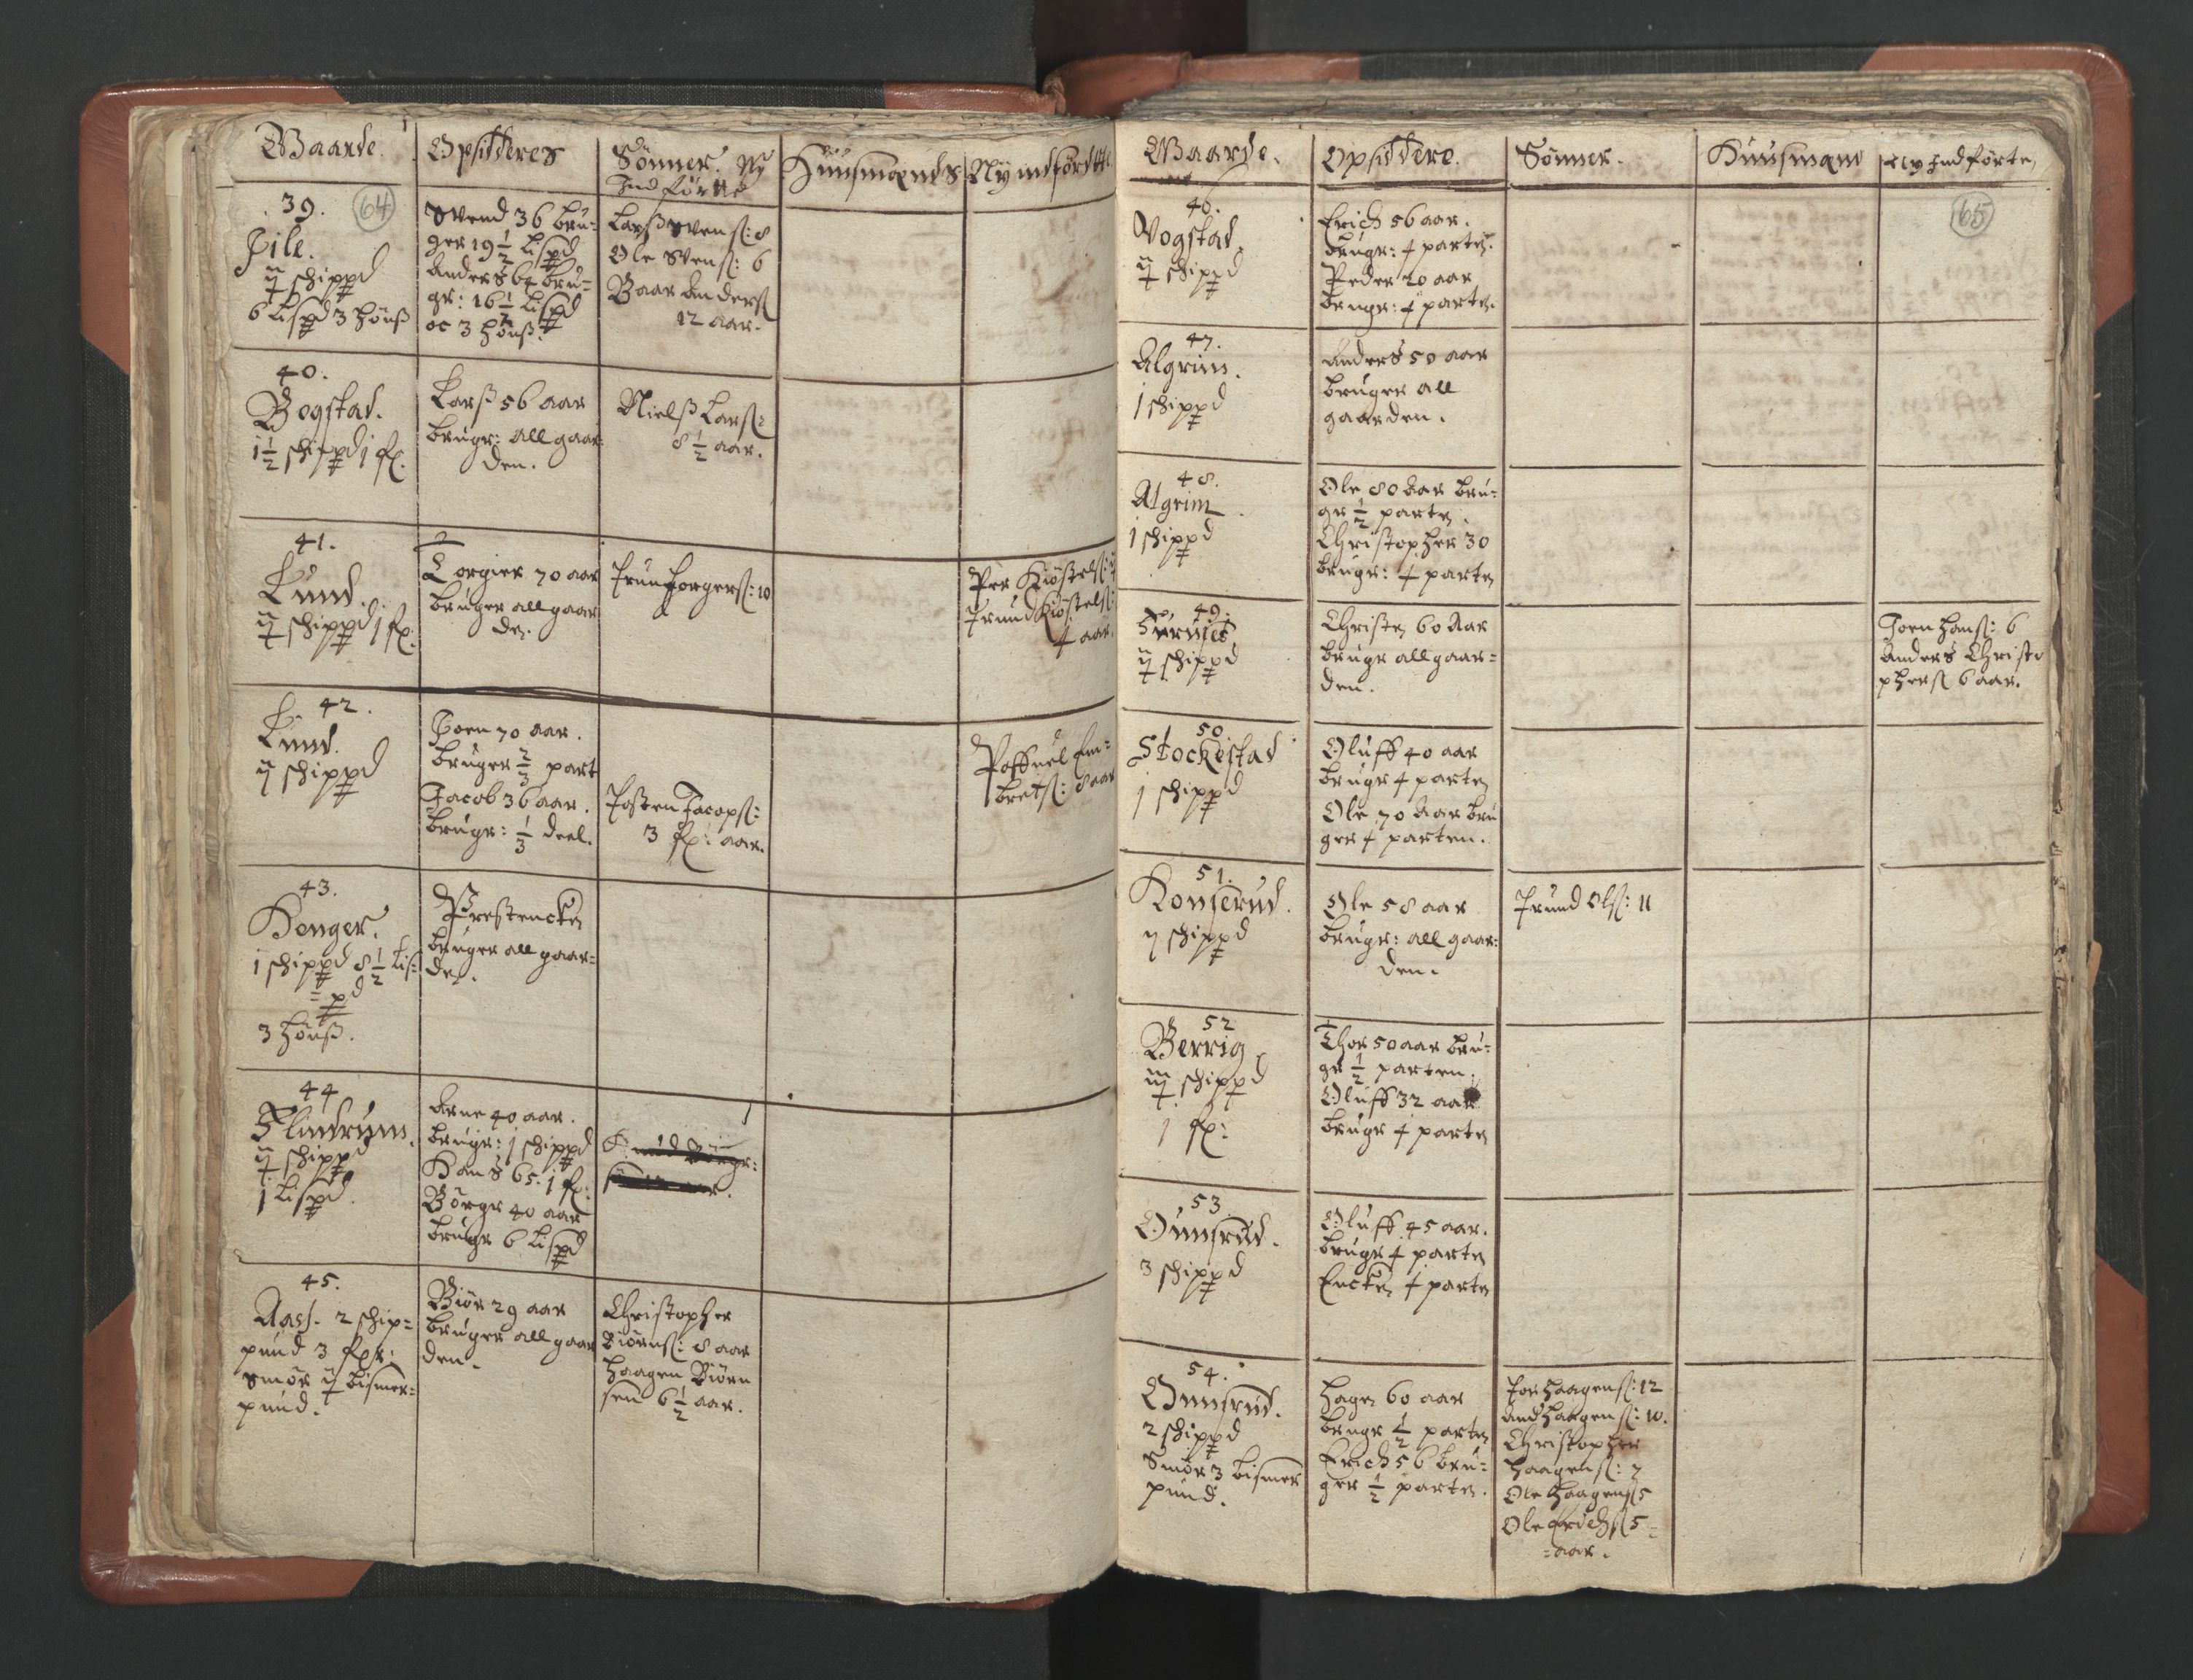 Gaarde.
Opsidderes
Sønner. Ny
Indførtte
Huusmænds
Ny indførdtte
39.
64
Pile.
ij schippd
6 Lispd 3 Hønß
Svend 36 bru-
ger 19 1/2 Lispd
Anders 64 bru-
gr: 16 1/2 Lispd
oc 3 hønß.
Larß Svens: 8
Ole Svens: 6
Baar Anders
12 aar.
40.
Bogstad.
1 1/2 schippd 1 fr.
Larß 56 aar
brugr: all gaar-
den.
Nielß Lars:
8 1/2 aar.
41.
Lund.
ij schippd 1 fr.
Torgier 70 aar
bruger all gaar
den.
Trun Torgers: 10
Per Kiøstels:
Trund Kiøstels:
4 aar.
42.
Lund.
ij schippd
Joen 70 aar.
bruger 2/3 part
Jacob 36 aar.
brugr: 1/3 deel.
Josten Jacops:
3 fr: aar.
Poffuel Em-
brets: 8 aar
43.
Henger.
1 schippd 8 1/2 Lis-
=pd
3 Hønß.
Prestencken
bruger all gaar-
den.
44
Flindrum.
ij schippd
1 Lispd.
Arne 40 aar.
brugr: 1 schippd
Hans 65. 1 fr:
Børgr 40 aar
brugr 6 Lispd
45.
Aass. 2 schip-
pund 3 fr:
Smør ij bismer-
pund.
Biør 29 aar
bruger all gaar
den.
Christopher
Biørns: 8 aar
Haagen Biørn
sen 6 1/2 aar.
Gaarde.
Opsiddere.
Sønner.
Huusmænd
Ny Indførte
65
46.
Vogstad.
ij schippd
Erich 56 aar.
brugr: 1/2 parten.
Peder 20 aar
brugr: 1/2 parten.
47.
Algrim.
1 schippd
Anders 50 aar
bruger all
gaarden.
48.
Algrim.
1 schippd
Ole 80 Aar bru-
gr 1/2 parten.
Christopher 30
brugr: 1/2 parten
49.
ij schippd
Christen 60 Aar
brugr all gaar-
den.
Joen Hans: 6
Anders Christo
phers 6 aar.
50.
Stockestad
1 schippd
Oluff 40 aar
brugr 1/2 parten
Ole 70 Aar bru
ger 1/2 parten.
51.
Konserud.
ij schippd
Ole 58 aar
brugr: all gaar-
den.
Trund Ols: 11
52
Berrig
iij schippd
1 fr:
Thor 50 aar bru-
gr 1/2 parten.
Oluff 32 aar
brugr 1/2 parten
53.
Omsrud.
3 schippd
Oluff 45 aar.
brugr 1/2 parten
Encken 1/2 parten
54.
Omsrud.
2 schippd
Smør 3 bismer
pund.
Hagen 60 aar
brugr 1/2 parten
Erich 56 bru-
ger 1/2 parten.
Tor Haagens: 12
And Haagens: 10.
Christopher
Haagens: 7
Ole Haagens 5
Ole Erichs 5-
=aar.